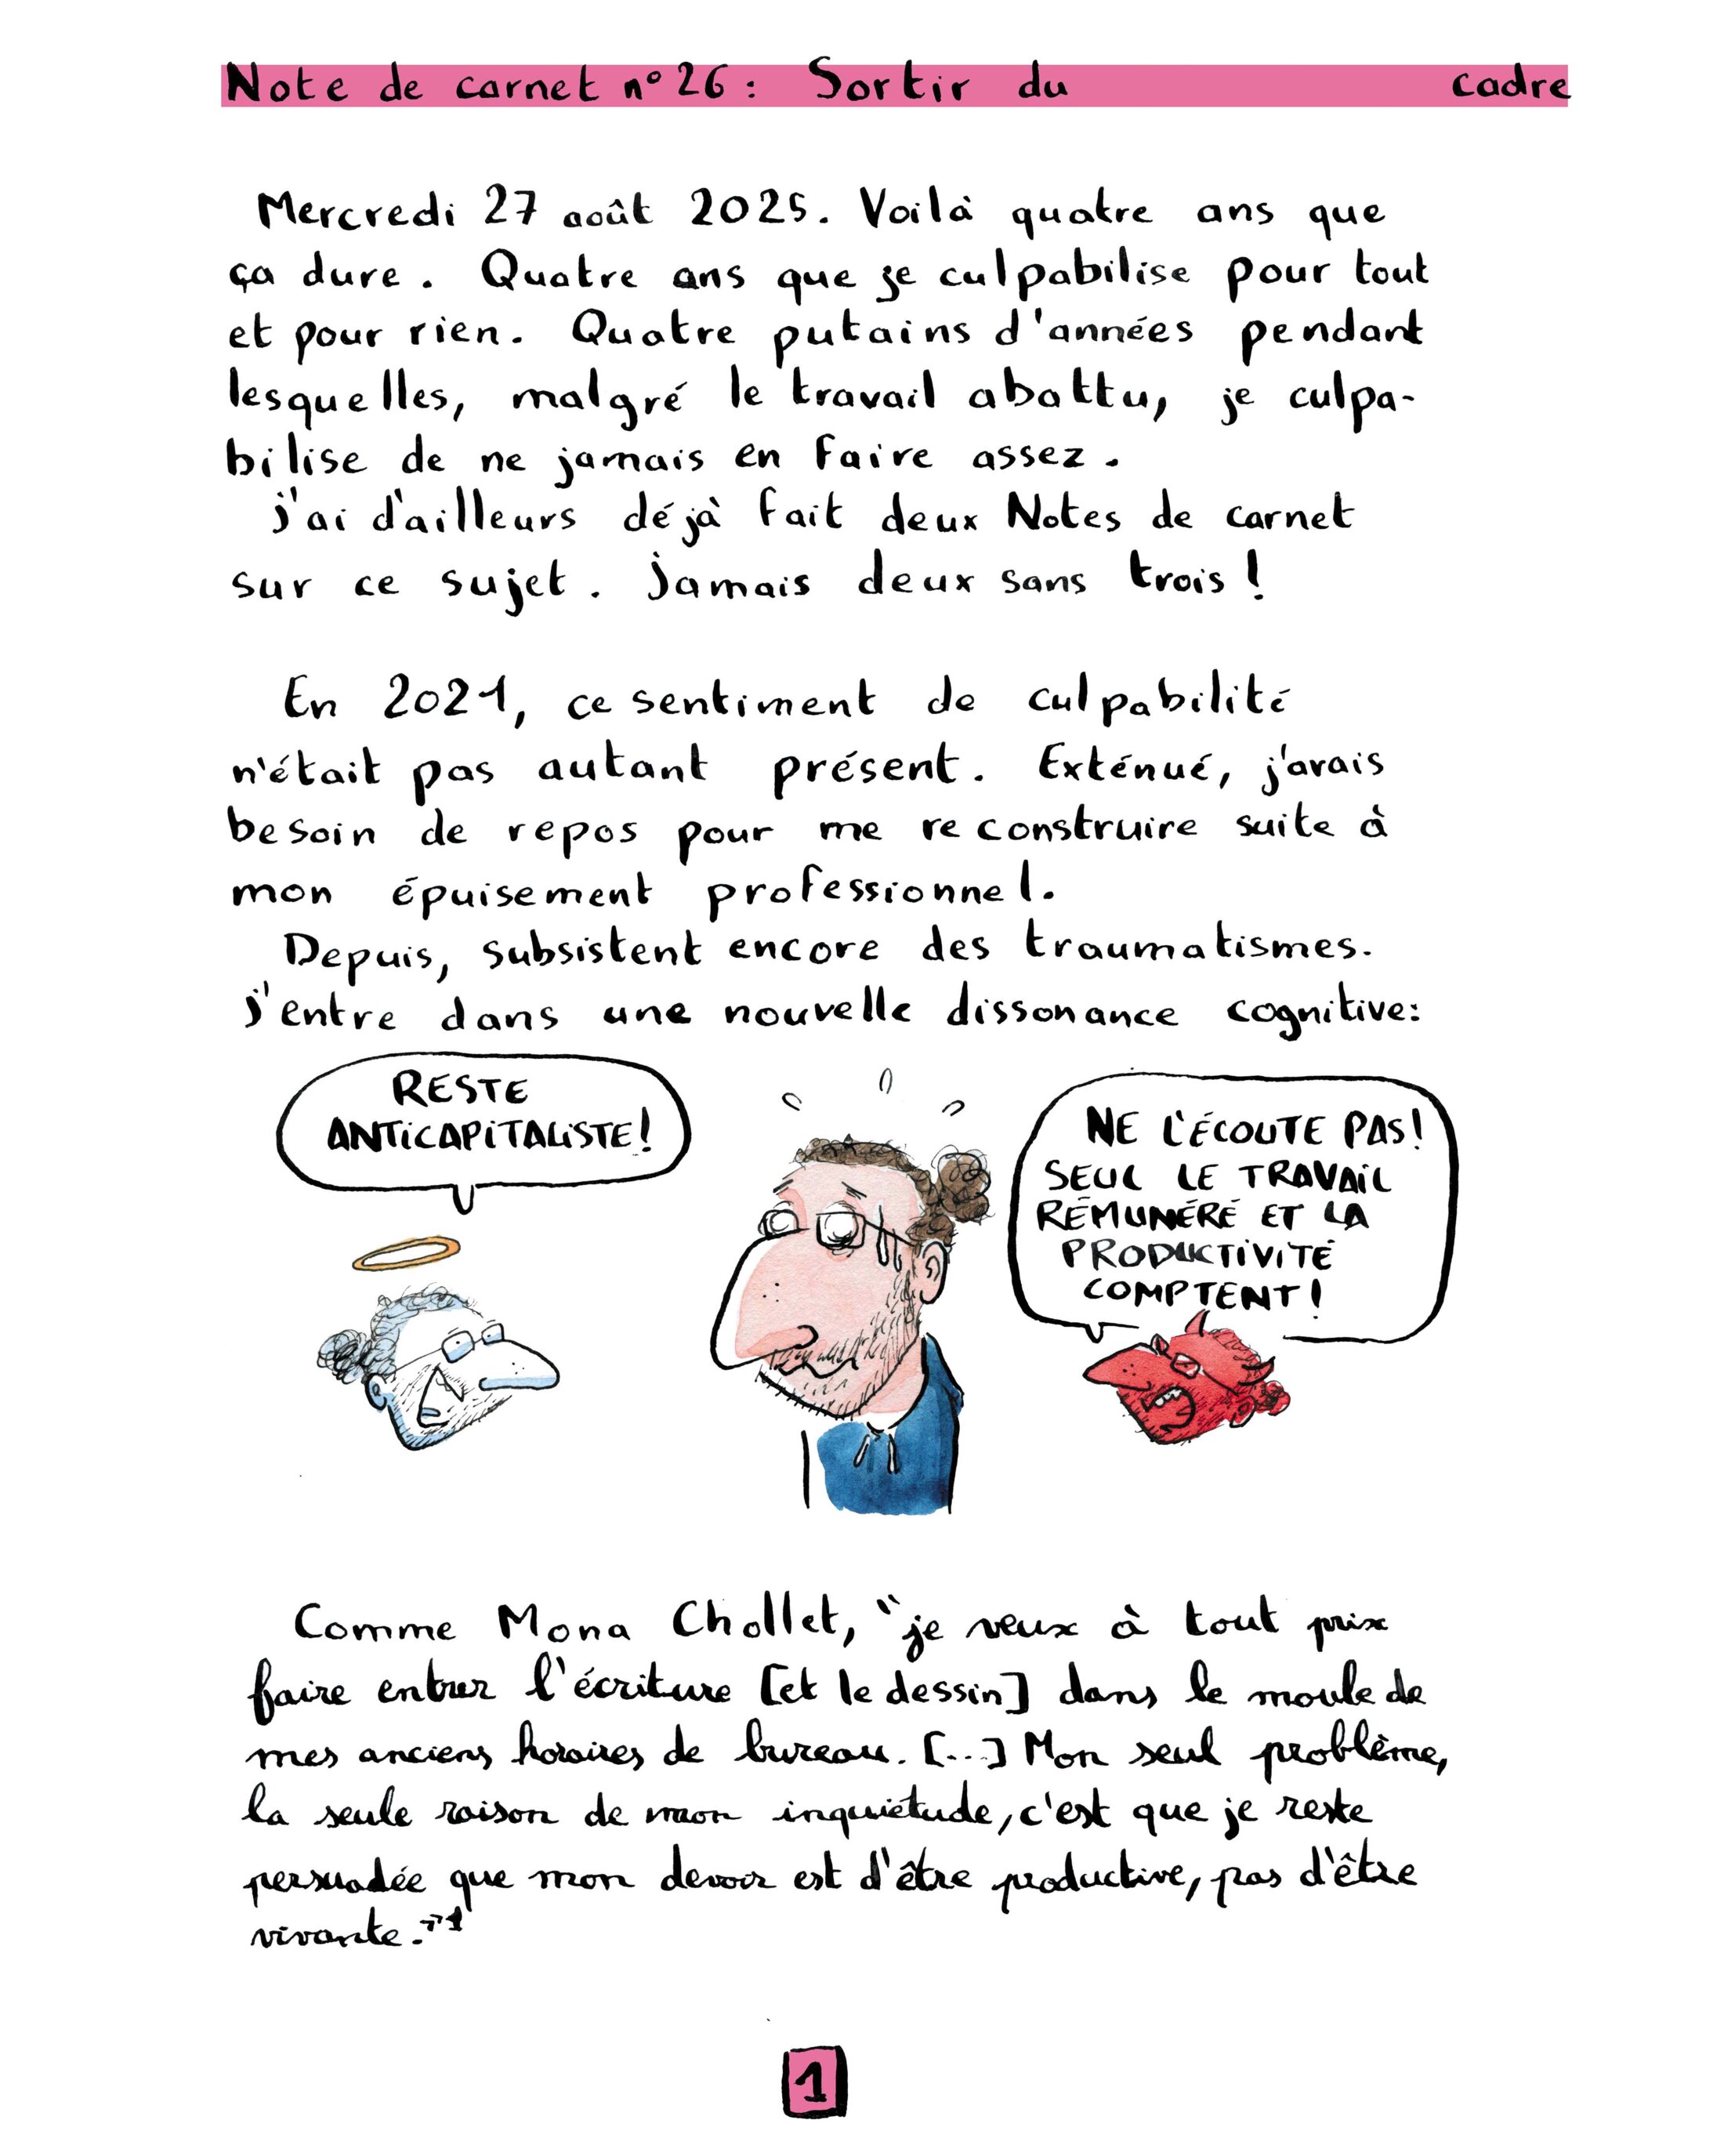 Note de carnet n° 26 : Sortir du cadre
Mercredi 27 août 2025. Voilà quatre ans que
ça dure. Quatre ans que je culpabilise pour tout
et pour rien. Quatre putains d'années pendant
lesquelles, malgré le travail abattu, je culpa-
bilise de ne jamais en faire assez.
J'ai d'ailleurs déjà fait deux Notes de carnet
sur ce sujet. Jamais deux sans trois !
En 2021, ce sentiment de culpabilité
n'était pas autant présent. Exténué, j'avais
besoin de repos pour me reconstruire suite à
mon épuisement professionnel.
Depuis, subsistent encore des traumatismes.
J'entre dans une nouvelle dissonance cognitive:
RESTE
ANTICAPITALISTE!
NE L'ÉCOUTE PAS!
SEUL LE TRAVAIL
RÉMUNÉRÉ ET LA
PRODUCTIVITÉ
COMPTENT!
Comme Mona Chollet, "je veux à tout prix
faire entrer l'écriture [et le dessin] dans le moule de
mes anciens horaires de bureau. [...] Mon seul problème,
la seule raison de mon inquiétude, c'est que je reste
persuadée que mon devoir est d'être productive, pas d'être
vivante."1
1